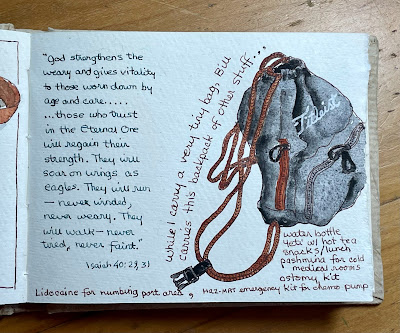 "God strengthens the
weary and gives vitality
to those worn down by
age and care.....
...those who trust
in the Eternal One
will regain their
strength. They will
soar on wings as
eagles. They will run
— never winded,
never weary. They
will walk — never
tired, never faint."
Isaiah 40:29,31
while I carry a very tiny bag, Bill
carries this backpack of other stuff...
Titleist
water bottle
Yeti w/ hot tea
snacks/lunch
pashmina for cold
medical rooms
ostomy kit
Lidocaine for numbing port area, HAZ-MAT emergency kit for chemo pump